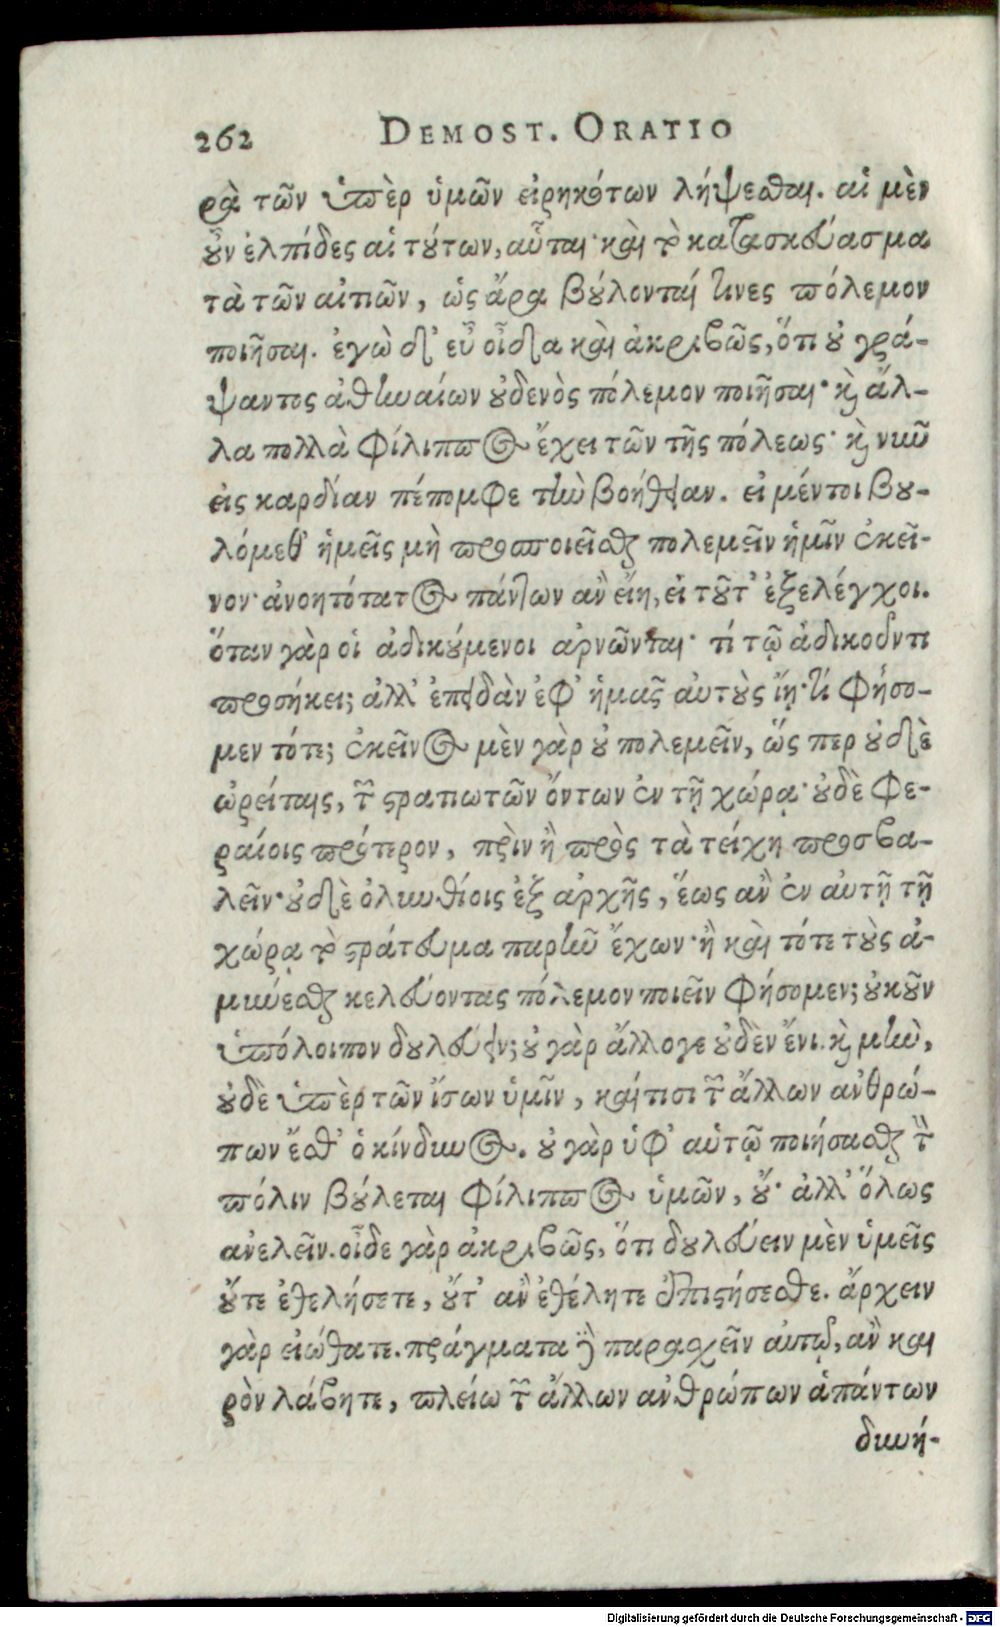 262 DEMOST. ORATIO
ρὰ τῶν ὑπὲρ ὑμῶν εἰρηκότων λήψεσθαι. αἱ μὲν
οὖν ἐλπίδες αἱ τούτων, αὗται· καὶ τὸ κατασκεύασμα
τὰ τῶν αἰτιῶν, ὡς ἄρα βούλονταί τινες πόλεμον
ποιῆσαι. ἐγὼ δ' εὖ οἶδα καὶ ἀκριβῶς, ὅτι οὐ γρά-
ψαντος ἀθηναίων οὐδενὸς πόλεμον ποιῆσαι· καὶ ἄλ-
λα πολλὰ Φίλιππος ἔχει τῶν τῆς πόλεως· καὶ νῦν
εἰς καρδίαν πέπομφε τὴν βοήθειαν. εἰ μέντοι βου-
λόμεθ' ἡμεῖς μὴ προσποιεῖσθαι πολεμεῖν ἡμῖν ἐκεῖ-
νον· ἀνοητότατος πάντων ἂν εἴη, εἰ τοῦτ' ἐξελέγχοι.
ὅταν γὰρ οἱ ἀδικούμενοι ἀρνῶνται· τί τῷ ἀδικοῦντι
προσήκει; ἀλλ' ἐπειδὰν ἐφ' ἡμᾶς αὐτοὺς ἴῃ· τί φήσο-
μεν τότε; ἐκεῖνος μὲν γὰρ οὐ πολεμεῖν, ὥς περ οὐδὲ
ὠρείταις, τῶν στρατιωτῶν ὄντων ἐν τῇ χώρᾳ· οὐδὲ Φε-
ραίοις πρότερον, πρὶν ἢ πρὸς τὰ τείχη προσβα-
λεῖν· οὐδὲ ὀλυνθίοις ἐξ ἀρχῆς, ἕως ἂν ἐν αὐτῇ τῇ
χώρᾳ τὸ στράτευμα παρῆν ἔχων· ἢ καὶ τότε τοὺς ἀ-
μύνεσθαι κελεύοντας πόλεμον ποιεῖν φήσομεν; οὐκοῦν
ὑπόλοιπον δουλεύειν; οὐ γὰρ ἄλλο γε οὐδὲν ἔνι. καὶ μὴν,
οὐδὲ ὑπὲρ τῶν ἴσων ὑμῖν, καί τισι τῶν ἄλλων ἀνθρώ-
πων ἔσθ' ὁ κίνδυνος. οὐ γὰρ ὑφ' αὑτῷ ποιήσασθαι τὴν
πόλιν βούλεται Φίλιππος ὑμῶν, οὔ· ἀλλ' ὅλως
ἀνελεῖν. οἶδε γὰρ ἀκριβῶς, ὅτι δουλεύειν μὲν ὑμεῖς
οὔτε ἐθελήσετε, οὔτ' ἂν ἐθέλητε ἐπιστήσεσθε. ἄρχειν
γὰρ εἰώθατε. πράγματα δὲ παρασχεῖν αὐτῷ, ἂν και
ρὸν λάβητε, πλείω τῶν ἄλλων ἀνθρώπων ἁπάντων
δυνή-
Digitalisierung gefördert durch die Deutsche Forschungsgemeinschaft - DFG